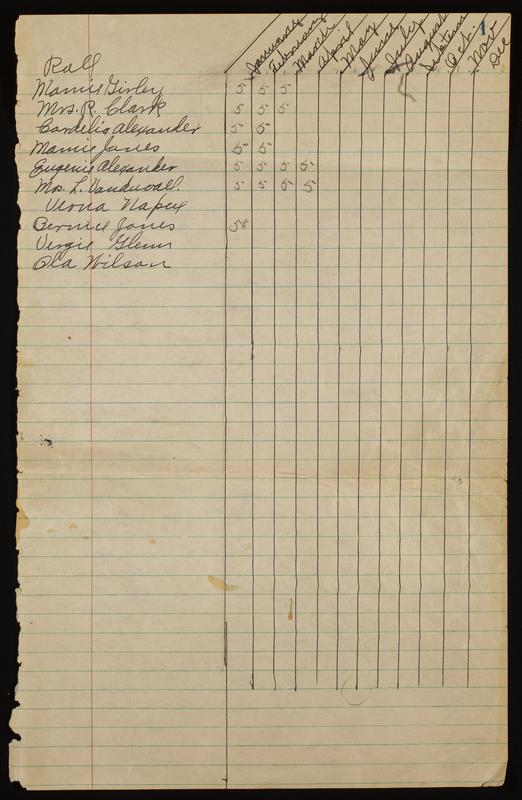 1
January February March April May June July August Septem Oct. Nov Dec
Roll
Mamie Girley 5 5 5
Mrs. R. Clark 5 5 5
Cordelia Alexander 5 5
Mamie Jones 5 5
Eugenie Alexander 5 5 5 5
Mrs. L. Vanduvall. 5 5 5 5
Verna Napue
Bernice Jones 5¢
Vergie Glenn
Ola Wilson